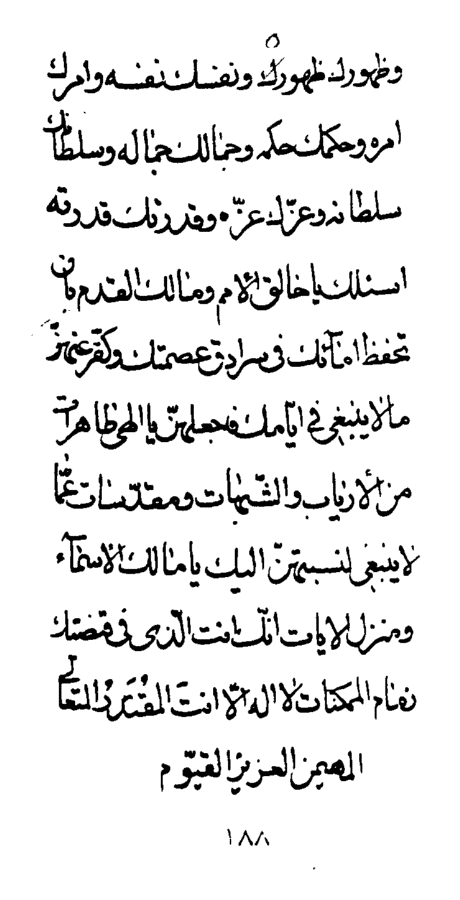 وظهورك ظهوره ونفسك نفسه وامرك
امره وحكمك حكمه وجمالك جماله وسلطانك
سلطانه وعزّك عزّه وقدرتك قدرته
اسئلك يا خالق الامم ومالك القدم بان
تحفظ امآئك فی سرادق عصمتك وكفّر عنهنّ
ما لا ينبغی فی ايّامك فاجعلهنّ يا الهی طاهرات
من الارياب والشّبهات ومقدّسات عمّا
لا ينبغی لنسبتهنّ اليك يا مالك الاسمآء
ومنزل الايات انّك انت الّذی فی قبضتك
زمام الممكنات لا اله الّا انت المقتدر المتعالی
المهيمن العزيز القيّوم
١٨٨